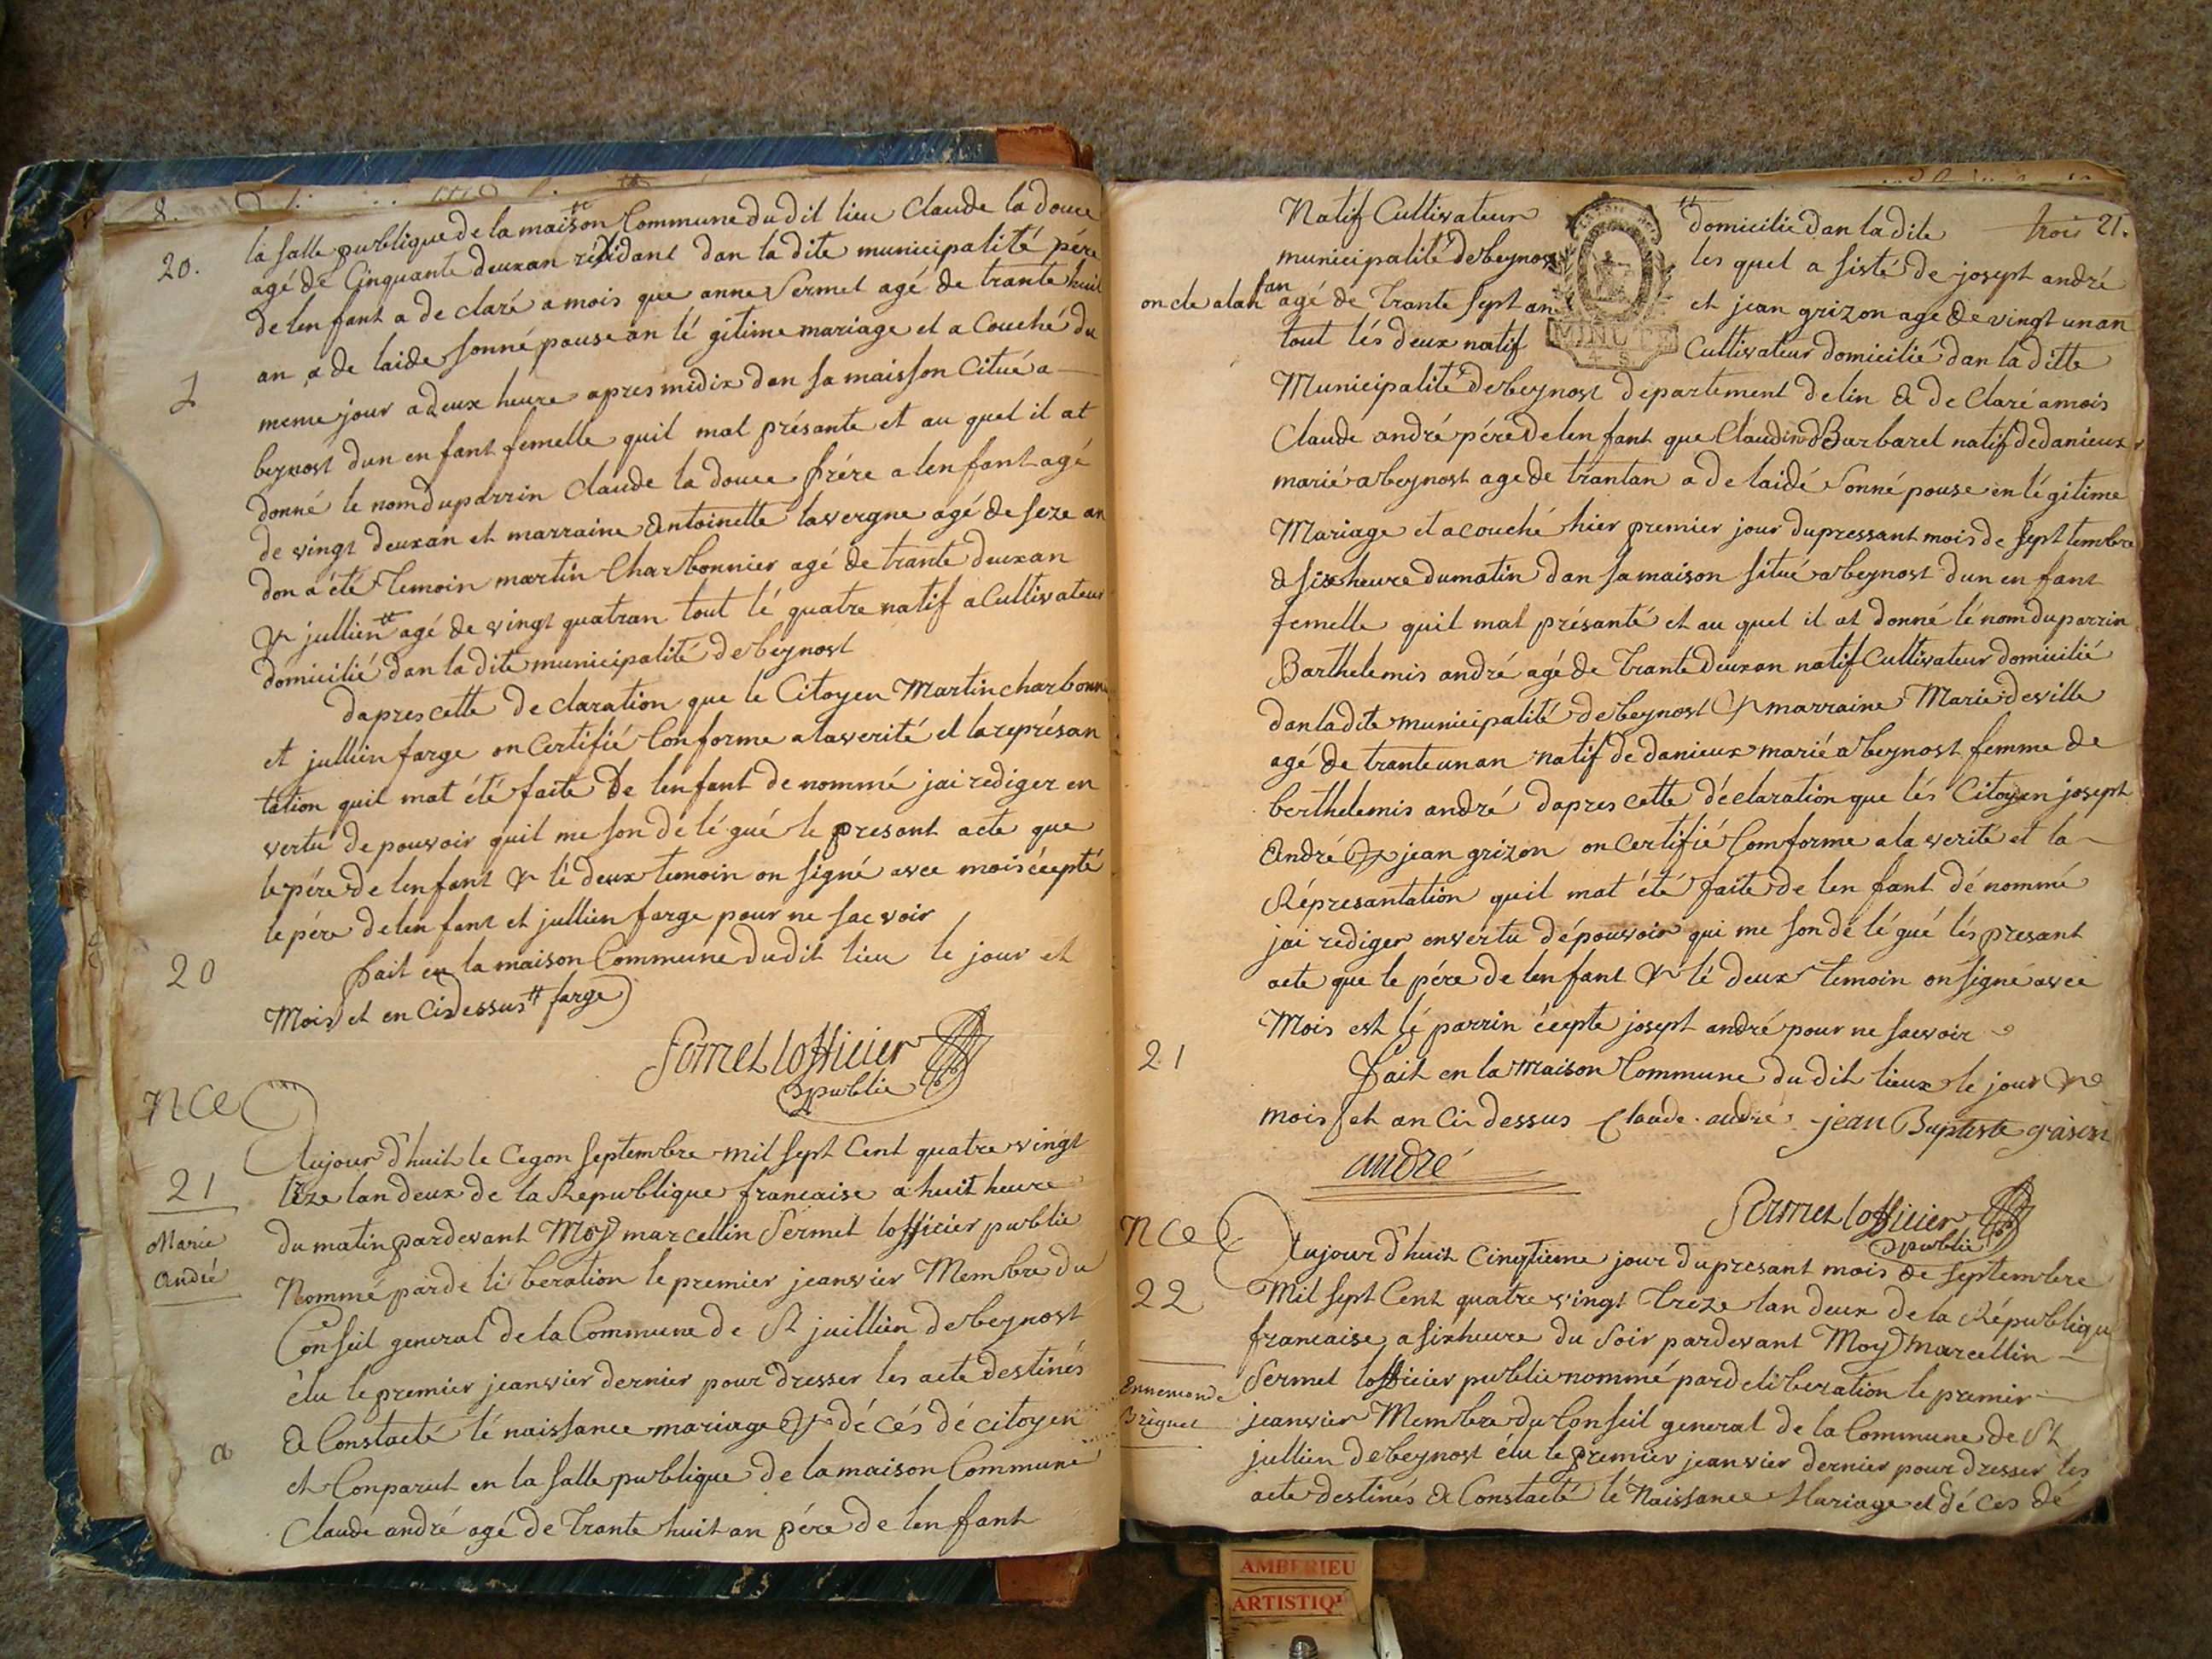 8.
20.
la salle publique de la maison Commune du dit lieu Claude la douce
agé de Cinquante deux an résidant dan la dite municipalité pére
de len fant a de claré a mois que anne Sermet agé de trante huit
an a de laide sonné pouse an lé gitime mariage et a Couché du
meme jour a deux heure apres midix dan sa maisson Citué a
beynost dun en fant femelle quil mat présante et au quel il at
donné le nom du parrin Claude la douce frére a len fant agé
de vingt deux an et marraine antoinette lavergne agé de seze an
don a été temoin martin Charbonnier agé de trante deux an
& jullien # agé de vingt quatran tout lé quatre natif a Cultivateur
domicilié dan la dite municipalité de beynost
dapres cette de claration que le Citoyen Martin charbonn
et jullien farge on Certifié Conforme a la verité et la représan
tation quil mat été faite de lenfant de nommé jai rediger en
vertu de pouvoir quil me son de lé gué le presant acte que
le pére de lenfant & lé deux temoin on signé avec mois écepté
le pére de len fant et jullien farge pour ne sac voir
20
fait en la maison Commune du dit lieu le jour et
Mois et en Ci dessus # farge
Sermet lofficier
public
nce
Aujour d'huit le Cegon septembre mil sept Cent quatre vingt
21
tréze lan deux de la Republique francaise a huit heure
Marie
andré
du matin pardevant Moy marcellin Sermet lofficier public
Nommé par de li beration le premier jeanvier Membre du
Conseil general de la Commune de St juillien de beynost
élu le premier jeanvier dernier pour dresser les acte destinés
a Constacté lé naissance mariage & dé cés dé citoyen
a
et Conparut en la salle publique de la maison Commune
Claude andré agé de trante huit an pére de len fant
Natif Cultivateur domicilié dan la dite
trois 21.
municipalité de beynost les quel a sisté de josept andré
oncle a lan fan agé de trante sept an et jean grizon age de vingt un an
MINUTE
tout lés deux natif Cultivateur domicilié dan la ditte
Municipalité de beynost departement de lin a de Claré a mois
Claude andré pére de len fant que Claudine Barbaret natif de danieux
marié a beynost age de trantan a de laidé sonné pouse en lé gitime
Mariage et a couché hier premier jour du pressant mois de sept tembre
a six heure du matin dan sa maison situé a beynost dun en fant
femelle quil mat présanté et au quel il at donné lé nom du parrin
Barthelemis andré agé de trante deux an natif Cultivateur domicilié
dan la dite municipalité de beynost & marraine Marie deville
agé de trante un an natif de danieux marié a beynost femme de
berthelemis andré dapres cette déclaration que lés Citoyen josept
andré & jean grizon on Certifié Comforme a la verité et la
Répresantation quil mat été faite de len fant dé nommé
jai rediger en vertu dé pouvoir qui me son dé lé gué lés presant
acte que le pére de lenfant & lé deux temoin on signé avec
Mois est lé parrin écepte josept andré pour ne sacvoir
21
fait en la maison Commune du dit lieux le jour &
mois et an Ci dessus Claude andré jean Baptiste grison
andré
Sermet lofficier
public
nce
Aujour d'huit Cinqtieme jour du presant mois de septembre
22
Mil sept Cent quatre vingt treze lan deux de la Républiqu
francaise a six heure du Soir pardevant Moy Marcellin
Ennemonde
Briquet
Sermet lofficier public nommé par deli beration le premier
jeanvier Membre du Conseil general de la Commune de St
jullien de beynost élu le premier jeanvier dernier pour dresser les
acte destinés a Constacté lé Naissance Mariage et dé ces dé
AMBERIEU
ARTISTIQ